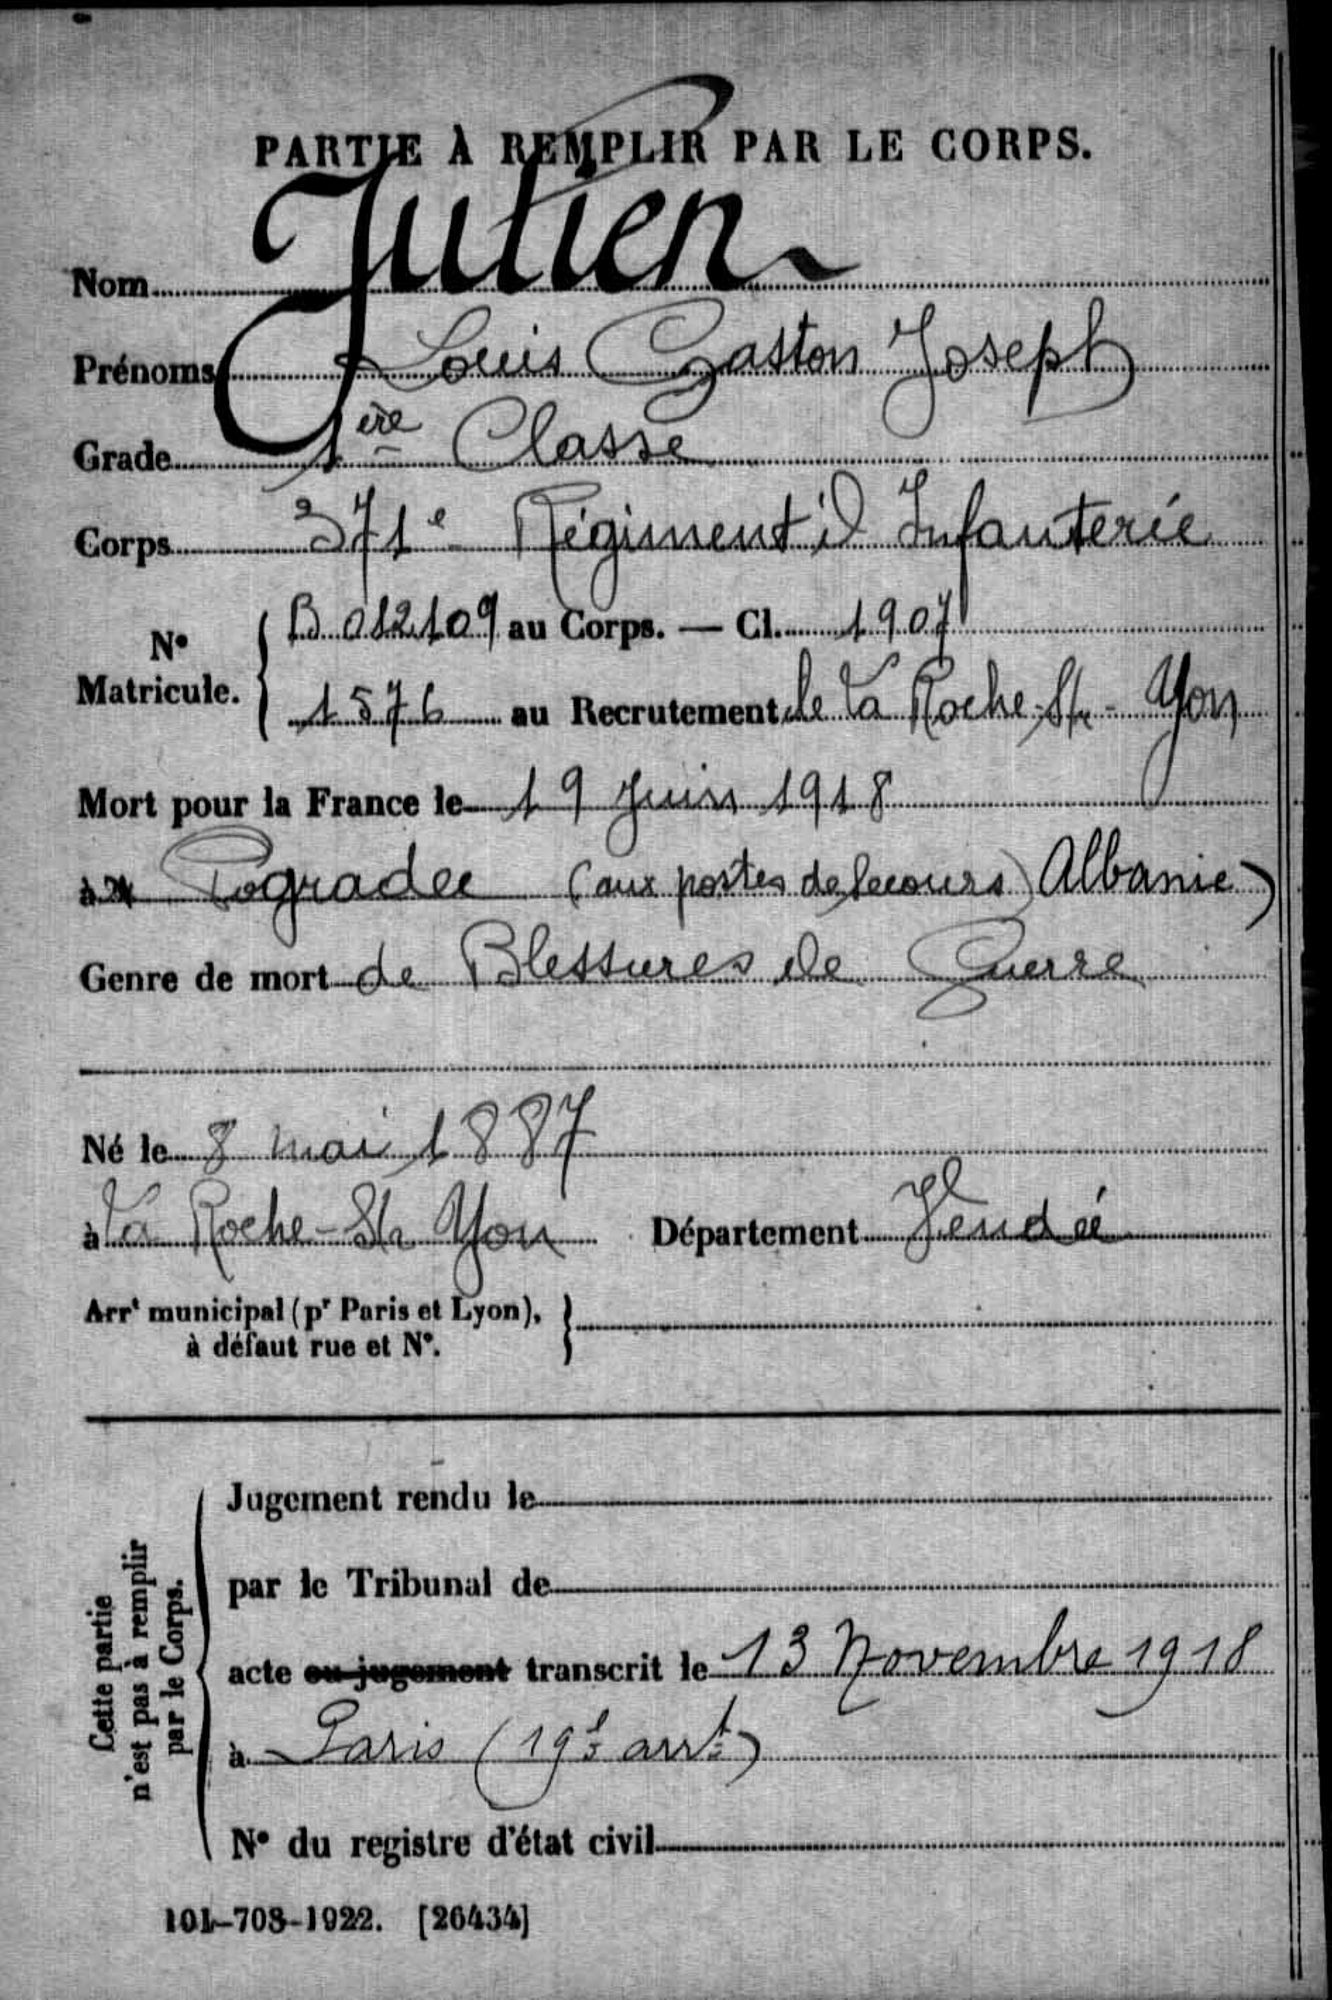 PARTIE À REMPLIR PAR LE CORPS.
Nom Julien
Prénoms Louis Gaston Joseph
Grade 1ère Classe
Corps 371e Régiment d'Infanterie
No Matricule. B 012109 au Corps. — Cl. 1907
1576 au Recrutement de la Roche-St-Yon
Mort pour la France le 19 Juin 1918
à Pogradec (aux postes de Secours) Albanie)
Genre de mort de Blessures de Guerre
Né le 8 mai 1887
à la Roche-St Yon Département Vendée
Arrt municipal (pr Paris et Lyon),
à défaut rue et No.
Cette partie
n'est pas à remplir
par le Corps.
Jugement rendu le
par le Tribunal de
acte ou jugement transcrit le 13 Novembre 1918
à Paris (19e arrt)
No du registre d'état civil
101-708-1922. [26434]